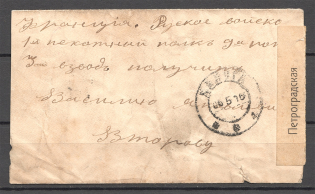 Франція. Руское войско
1й пехотный полкъ 9я рот
3й взводъ получить
Василию
Второву
Петроградская